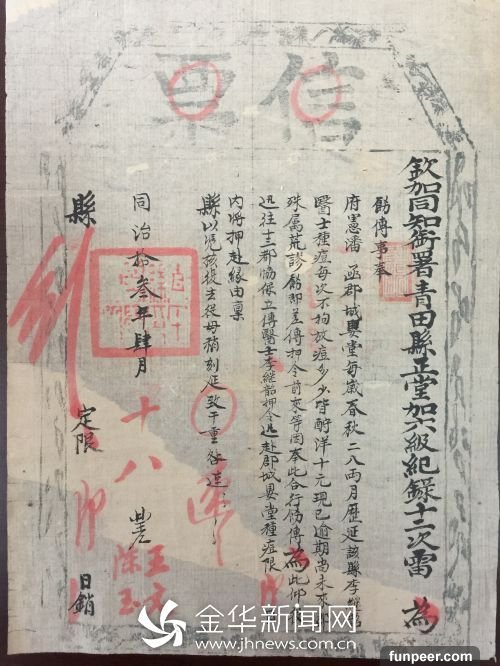 信票
欽加同知銜署青田縣正堂加六級紀錄十二次雷 為
飭傳事奉
府憲潘 函郡城嬰堂每歲春秋二八兩月歷延該縣李繼
醫士種痘每次不拘放痘多少皆酧洋十元現已逾期尚未來
殊屬荒謬飭即差傳押令前來等因奉此合行飭傳為此仰
迅往十三都協保立傳醫士李繼韶押令迅赴郡城嬰堂種痘限
內將押赴緣由稟
縣以憑核後去役毋稍刻延致干重咎速
同治拾叁年肆月 十八
縣 定限 日銷
金华新闻网
www.jhnews.com.cn
funpeer.com